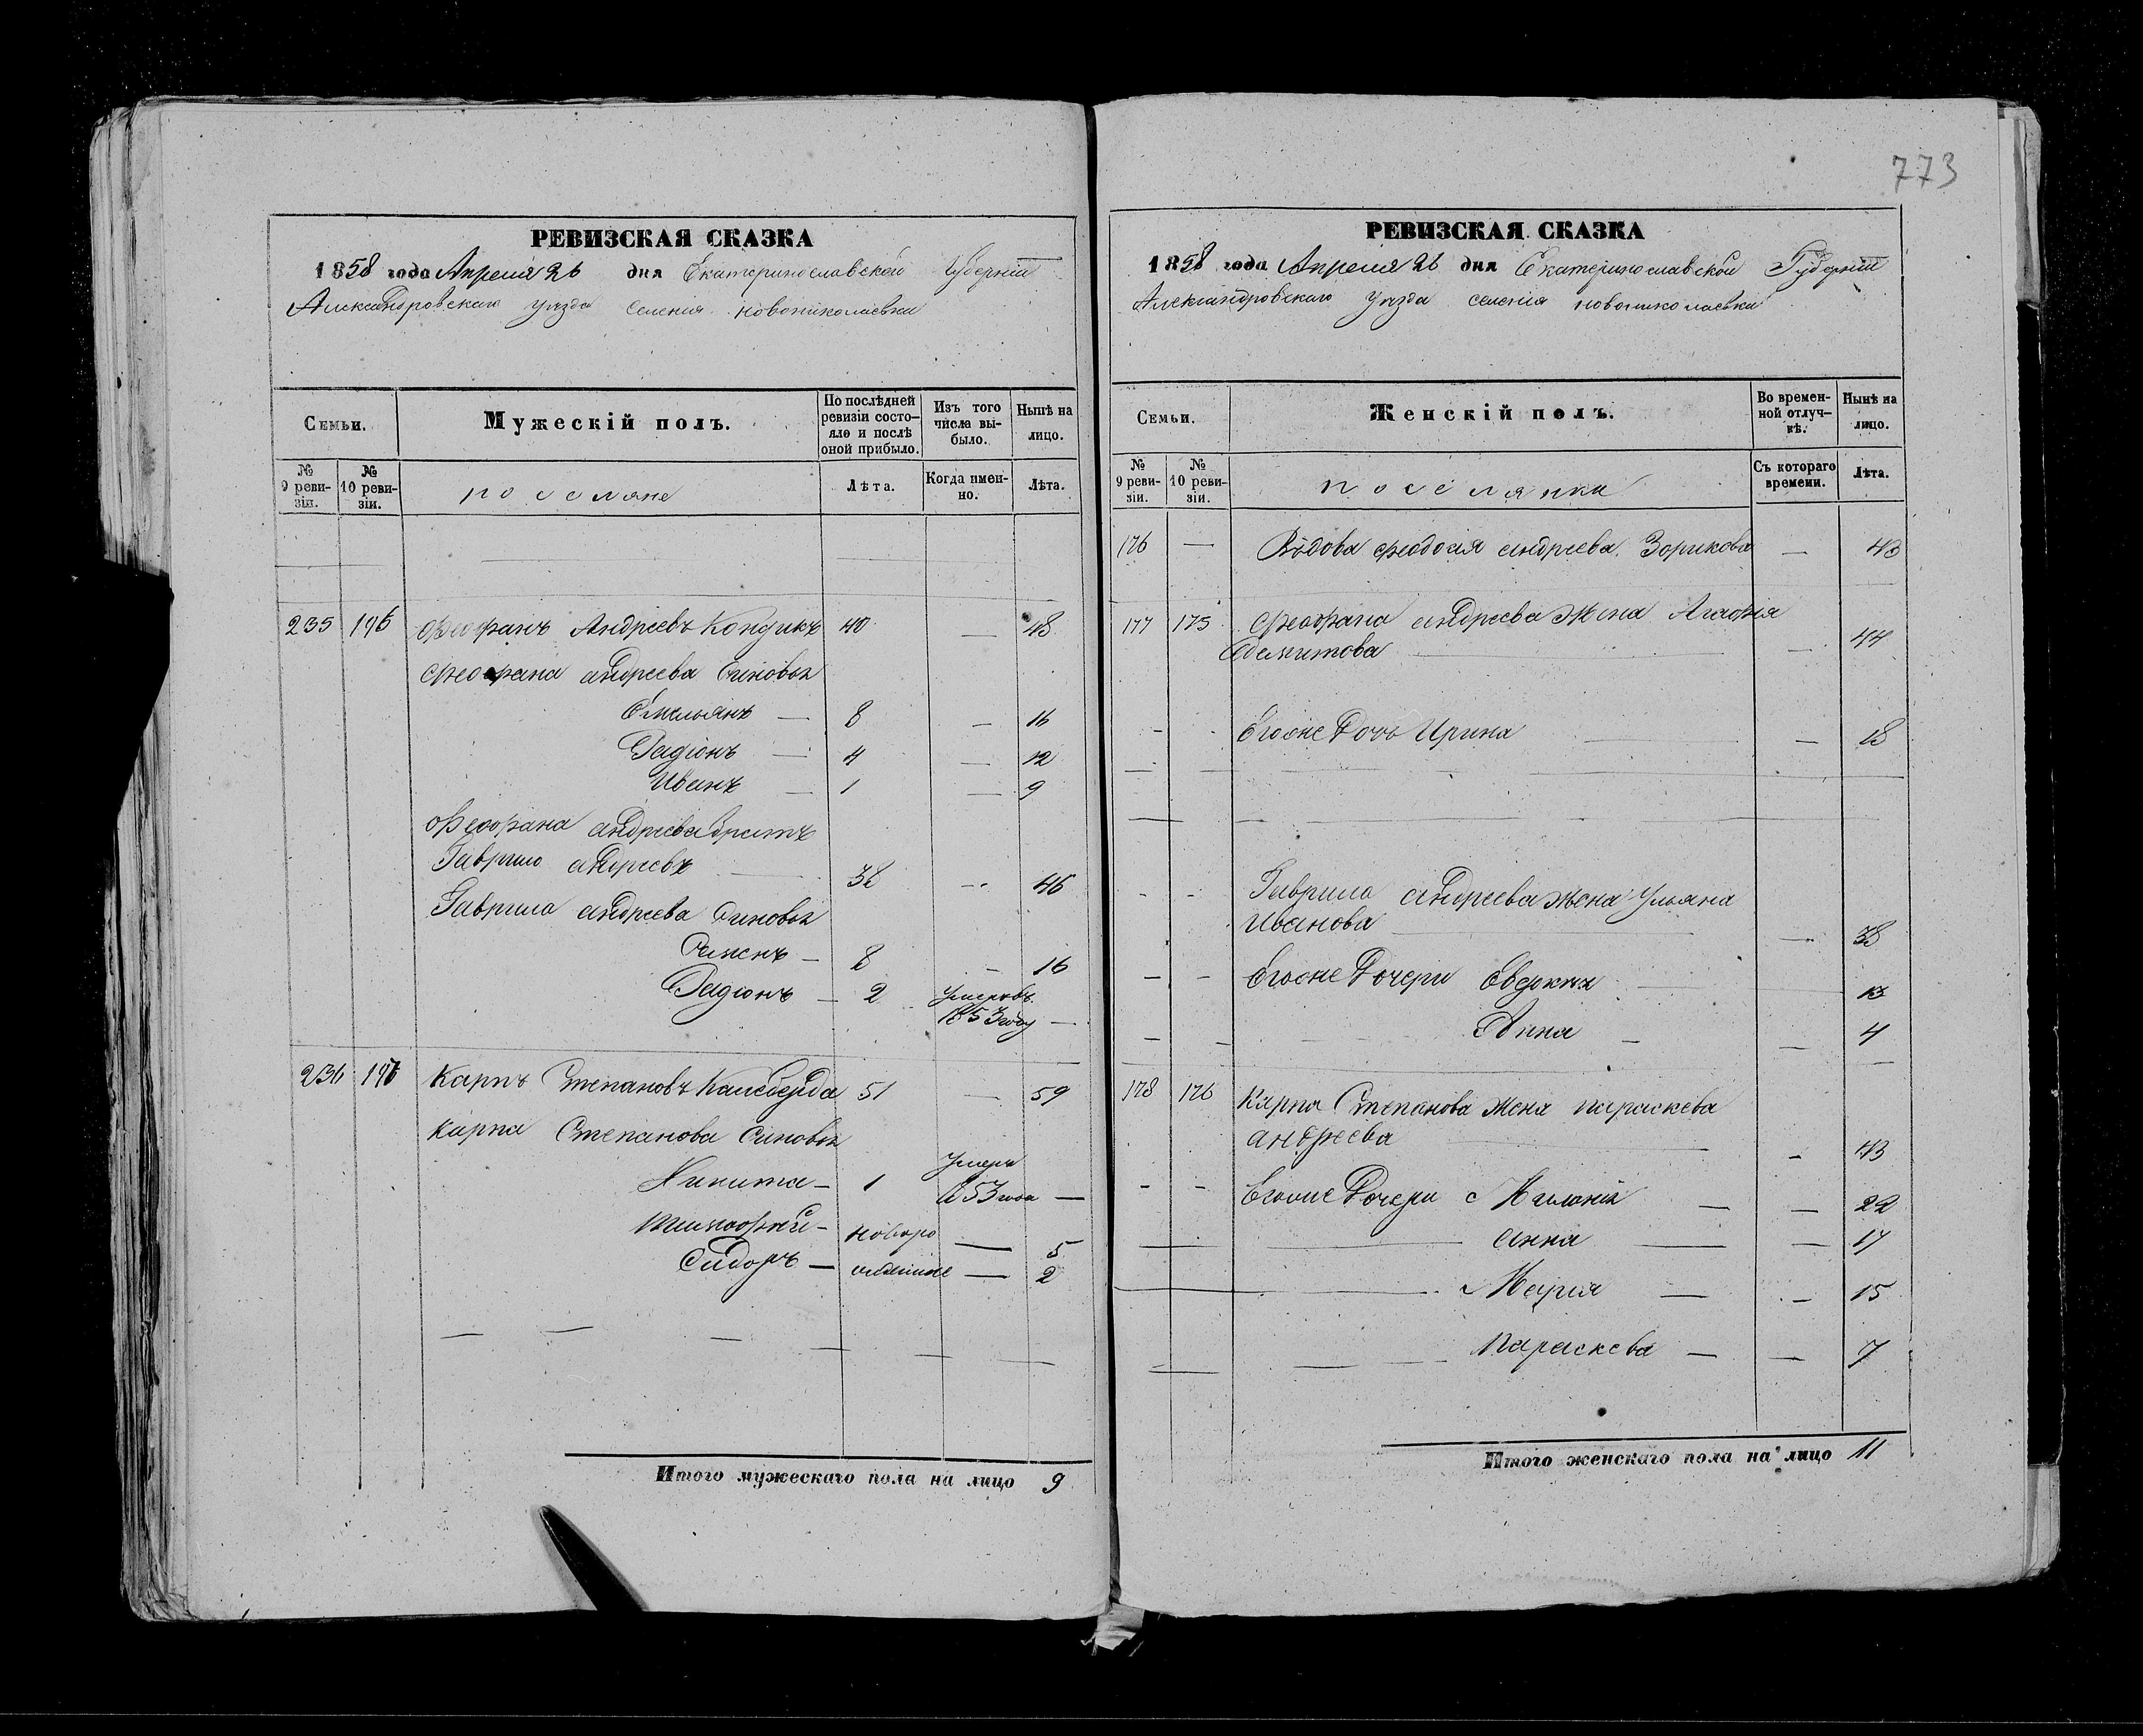 773
РЕВИЗСКАЯ СКАЗКА
1858 года Апреля 26 дня Екатеринославской Губерніи
Александровскаго уезда селенія новониколаевки
Семьи.
Мужескій полъ.
По послѣдней ревизіи состояло и послѣ оной прибыло.
Изъ того числа выбыло.
Нынѣ на лицо.
№ 9 ревизіи.
№ 10 ревизіи.
поселяне
Лѣта.
Когда именно.
Лѣта.
235 Феофанъ Андреевъ Кондикъ 40 — 48
Феофана андреева синовья
Емельянъ — 8 — 16
Радіонъ — 4 — 12
Иванъ — 1 — 9
Феофана андреева братъ
Гаврило андреевъ 38 -- 46
Гаврила андреева синовья
8 — 16
Радионъ — 2
1853 году —
236 Карпъ Степановъ 51 — 59
карпа Степанова синовья
Никита — 1 умеръ
1853 года —
Тимофей — новоро — 5
Сидоръ — — 2
Итого мужескаго пола на лицо 9
РЕВИЗСКАЯ СКАЗКА
1858 года Апреля 26 дня Екатеринославской Губерніи
Александровскаго уезда селенія новониколаевки
Семьи.
Женскій полъ.
Во временной отлучкѣ.
Нынѣ на лицо.
№ 9 ревизіи.
№ 10 ревизіи.
поселянки
Съ котораго времени.
Лѣта.
176 — Вдова феодосия андреева Зорикова — 43
177 175 Феофана андреева жена Агафія
— 44
Егоже Дочь Ирина — 18
Гаврила андреева жена Ульяна
Иванова — 38
Егоже Дочери 13
Анна — — 4
178 176 Карпа Степанова жена параскева
андреева — 43
Егоже Дочери — — 22
анна — — 17
Мария — — 15
параскева — — 7
Итого женскаго пола на лицо 11